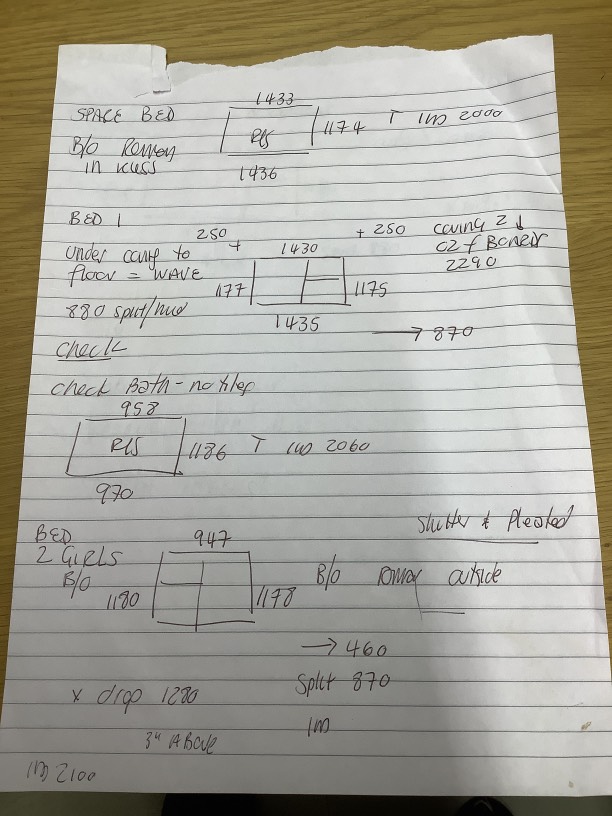 1433
SPARE BED
RLS
1174 T 1W 2000
B/O Roman
in recess
1436
BED 1
250 +
+ 250
1430
Under coving to
floor = WAVE
1177
1175
2290
1435
880 split/
→ 870
check
check Bath - no tiles
958
RLS
1186 T 1W 2060
970
Shutter & Pleated
BED
2 GIRLS
B/O
947
1180
1178
B/O Roman outside
→ 460
Split 870
x drop 1280
3" Above
2100